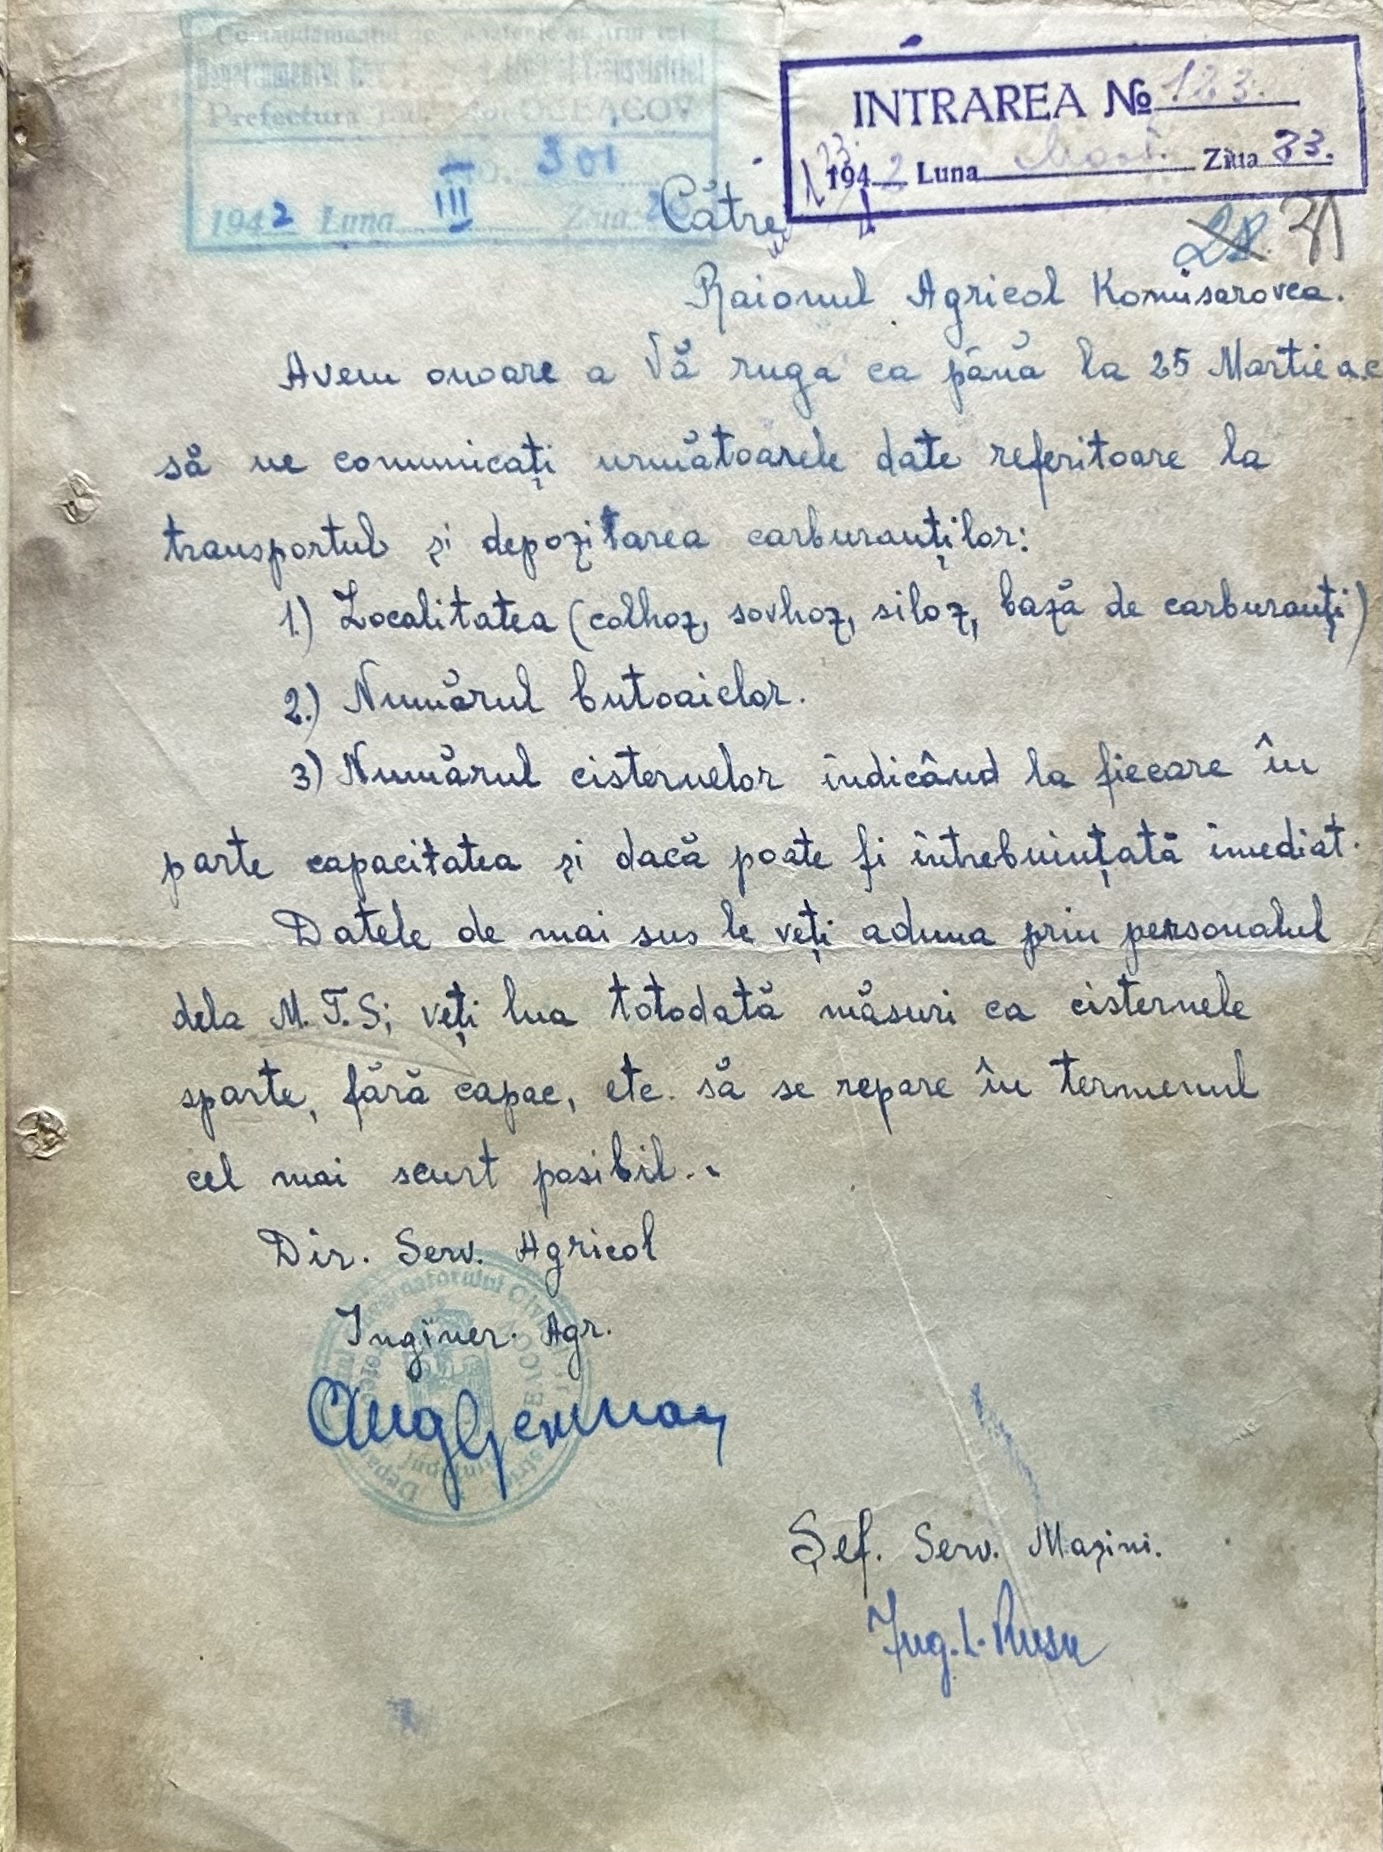 Prefectura
No. 301
1942 Luna III Ziua
INTRAREA № 123.
1942 Luna Mart. Ziua 23.
Către
28. 31
Raionul Agricol Komisarovca.
Avem onoare a Vă ruga ca până la 25 Martie a.c
să ne comunicați următoarele date referitoare la
transportul și depozitarea carburanților:
1.) Localitatea (colhoz, sovhoz, siloz, bază de carburanți)
2.) Numărul butoaielor.
3) Numărul cisternelor indicând la fiecare în
parte capacitatea și dacă poate fi întrebuințată imediat.
Datele de mai sus le veți aduna prin personalul
dela M.T.S; veți lua totodată măsuri ca cisternele
sparte, fără capac, etc. să se repare în termenul
cel mai scurt posibil..
Dir. Serv. Agricol
Inginer. Agr.
Șef. Serv. Mașini.
Ing. I. Rusu